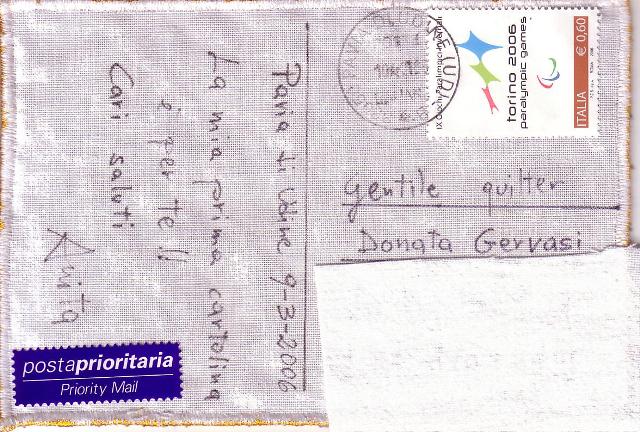 Pavia di Udine 9-3-2006
La mia prima cartolina
è per te!!
Cari saluti
Anita
IX Giochi Paralimpici Invernali
torino 2006
paralympic games
ITALIA € 0,60
Gentile quilter
Donata Gervasi
postaprioritaria
Priority Mail